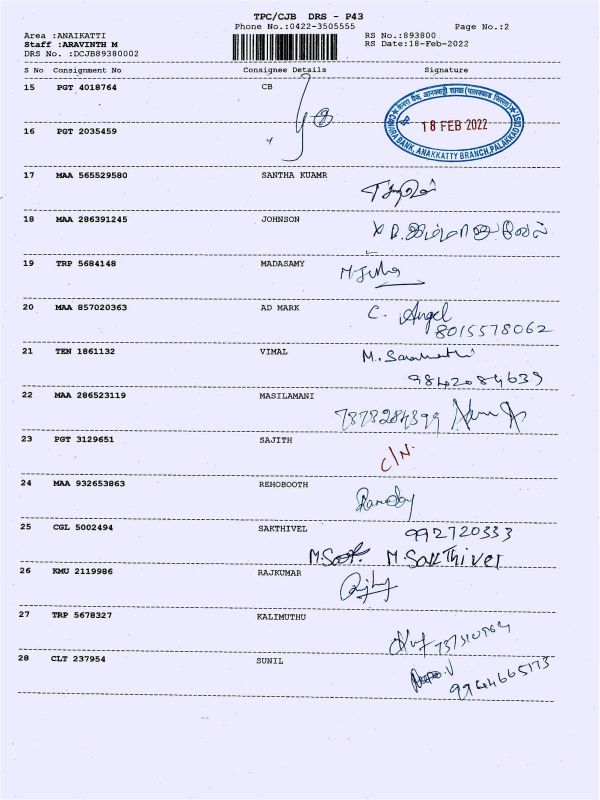 TPC/CJB DRS - P43
Phone No.:0422-3505555 Page No.:2
Area :ANAIKATTI RS No.:893800
Staff :ARAVINTH M RS Date:18-Feb-2022
DRS No. :DCJB89380002
S No Consignment No Consignee Details Signature
15 PGT 4018764 CB
CANARA BANK, ANAKKATTY BRANCH, PALAKKAD DIST
18 FEB 2022
16 PGT 2035459
17 MAA 565529580 SANTHA KUAMR
18 MAA 286391245 JOHNSON
19 TRP 5684148 MADASAMY
20 MAA 857020363 AD MARK C. Angel
8015578062
21 TEN 1861132 VIMAL
9842084639
22 MAA 286523119 MASILAMANI
7873284399
23 PGT 3129651 SAJITH C/N.
24 MAA 932653863 REHOBOOTH
25 CGL 5002494 SAKTHIVEL 992720333
M SakThivel
26 KMU 2119986 RAJKUMAR
27 TRP 5678327 KALIMUTHU
28 CLT 237954 SUNIL
9944665173